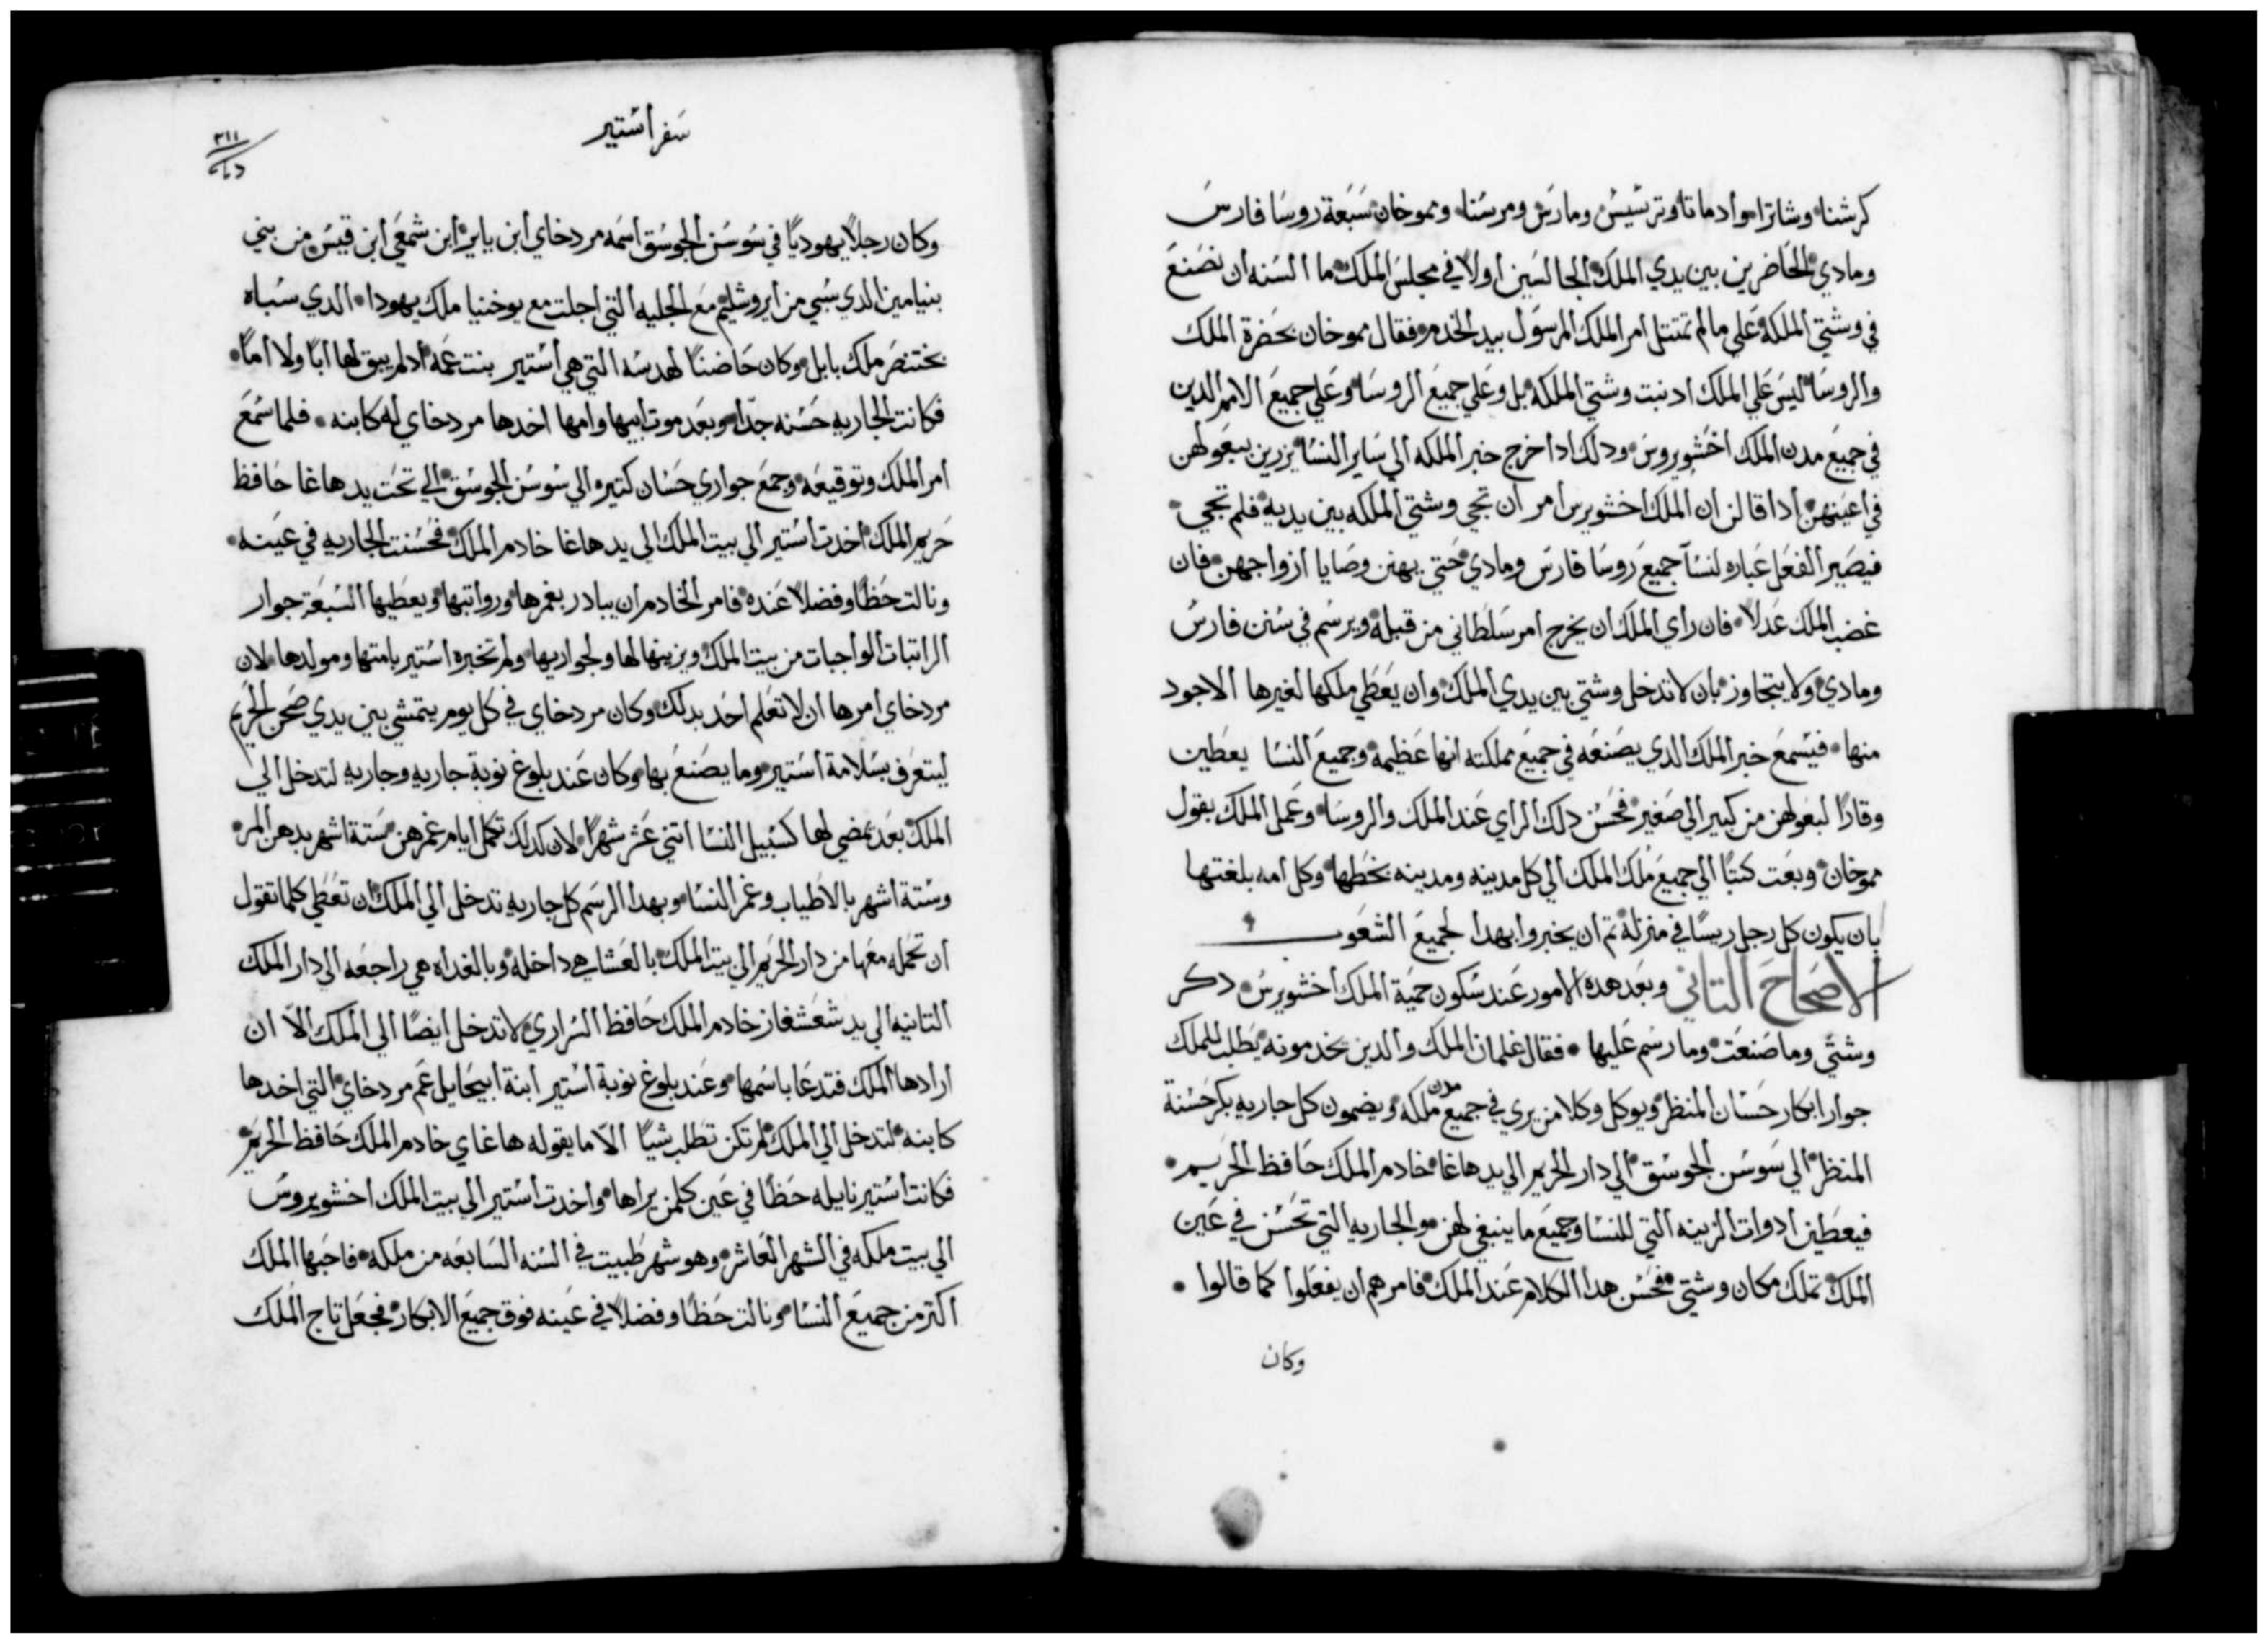 كرشنا وشاترا وادماتا وترشيش ومارس ومرسنا ومموخان سبعة روسا فارس
ومادي الحاضرين بين يدي الملك الجالسين اولا في مجلس الملك ما السنه ان نصنع
في وشتي الملكه علي مالم تمتتل امر الملك المرسول بيد الخدم فقال مموخان بحضرة الملك
والروسا ليس علي الملك ادنبت وشتي الملكه بل وعلي جميع الروسا وعلي جميع الامم الدين
في جميع مدن الملك اخشويروس ودلك ادا خرج خبر الملكه الي ساير النسا يزرين ببعولهن
في اعينهن ادا قالن ان الملك اخشويرس امر ان تجي وشتي الملكه بين يديه فلم تجي
فيصير الفعل عباره لنسآ جميع روسا فارس ومادي حتي يهنن وصايا ازواجهن فان
غضب الملك عدلا فان راي الملك ان يخرج امر سلطاني من قبله ويرسم في سنن فارس
ومادي ولا يتجاوز بان لا تدخل وشتي بين يدي الملك وان يعطي ملكها لغيرها الاجود
منها فيسمع خبر الملك الدي يصنعه في جميع مملكته انها عظيمه وجميع النسا يعطين
وقارا لبعولهن من كبير الي صغير فحسن دلك الراي عند الملك والروسا وعمل الملك بقول
مموخان وبعت كتبًا الي جميع ملك الملك الي كل مدينه ومدينه بخطها وكل امه بلغتها
بان يكون كل رجل ريسًا في منزله تم ان يخبروا بهدا لجميع الشعوب
الاصحاح التاني وبعد هده الامور عند سكون حمية الملك اخشويرس دكر
وشتي وما صنعت وما رسم عليها فقال غلمان الملك والدين يخدمونه يطلب للملك
جوار ابكار حسان المنظر ويوكل وكلا من يري في جميع مدن ملكه ويضمون كل جاريه بكر حسنة
المنظر الي سوسن الجوسق الي دار الحريم الي يد هاغا خادم الملك حافظ الحريم
فيعطين ادوات الزينه التي للنسا وجميع ما ينبغي لهن والجاريه التي تحسن في عين
الملك تملك مكان وشتي فحسن هدا الكلام عند الملك فامرهم ان يفعلوا كما قالوا
وكان
سفر استير
٣١١
وكان رجلاً يهوديًا في سوسن الجوسق اسمه مردخاي ابن يايرابن شمعي ابن قيس من بني
بنيامين الدي سبي من ايروشليم مع الجليه التي اجلت مع يوخنيا ملك يهودا الدي سباه
بختنصر ملك بابل وكان حاضنًا لهدسه التي هي استير بنت عمه ادلم يبق لها ابًا ولا امًا
فكانت الجاريه حسنه جدًا وبعد موت ابيها وامها اخدها مردخاي له كابنه فلما سمع
امر الملك وتوقيعه وجمع جواري حسان كتيره الي سوسن الجوسق الي تحت يد هاغا حافظ
حريم الملك اخدت استير الي بيت الملك الي يد هاغا خادم الملك فحسنت الجاريه في عينه
ونالت حظًا وفضلًا عنده فامر الخادم ان يبادر بغمرها ورواتبها ويعطيها السبعة جوار
الراتبات الواجبات من بيت الملك ويزينها لها ولجواريها ولم تخبره استير بامتها ومولدها لان
مردخاي امرها ان لا تعلم احد بدلك وكان مردخاي في كل يوم يتمشي بين يدي صحن الحريم
ليتعرف بسلامة استير وما يصنع بها وكان عند بلوغ نوبة جاريه وجاريه لتدخل الي
الملك بعد تمضي لها كسبيل النسا اتني عشر شهرًا لان كدلك تكمل ايام غمرهن ستة اشهر بدهن المر
وستة اشهر بالاطياب وغمر النسا وبهدا الرسم كل جاريه تدخل الي الملك ان تعطي كلما تقول
ان تحمله معها من دار الحريم الي بيت الملك بالعشا هي داخله وبالغداه هي راجعه الي دار الملك
التانيه الي يد شعشغاز خادم الملك حافظ السراري لا تدخل ايضًا الي الملك الا ان
ارادها الملك فتدعا باسمها وعند بلوغ نوبة استير ابنة ابيحايل عم مردخاي التي اخدها
كابنه لتدخل الي الملك لم تكن تطلب شيًا الا ما يقوله هاغاي خادم الملك حافظ الحريم
فكانت استير نايله حظًا في عين كلمن يراها واخدت استير الي بيت الملك اخشويروس
الي بيت ملكه في الشهر العاشر وهو شهر طبيت في السنه السابعه من ملكه فاحبها الملك
اكتر من جميع النسا ونالت حظًا وفضلًا في عينه فوق جميع الابكار فجعل تاج الملك